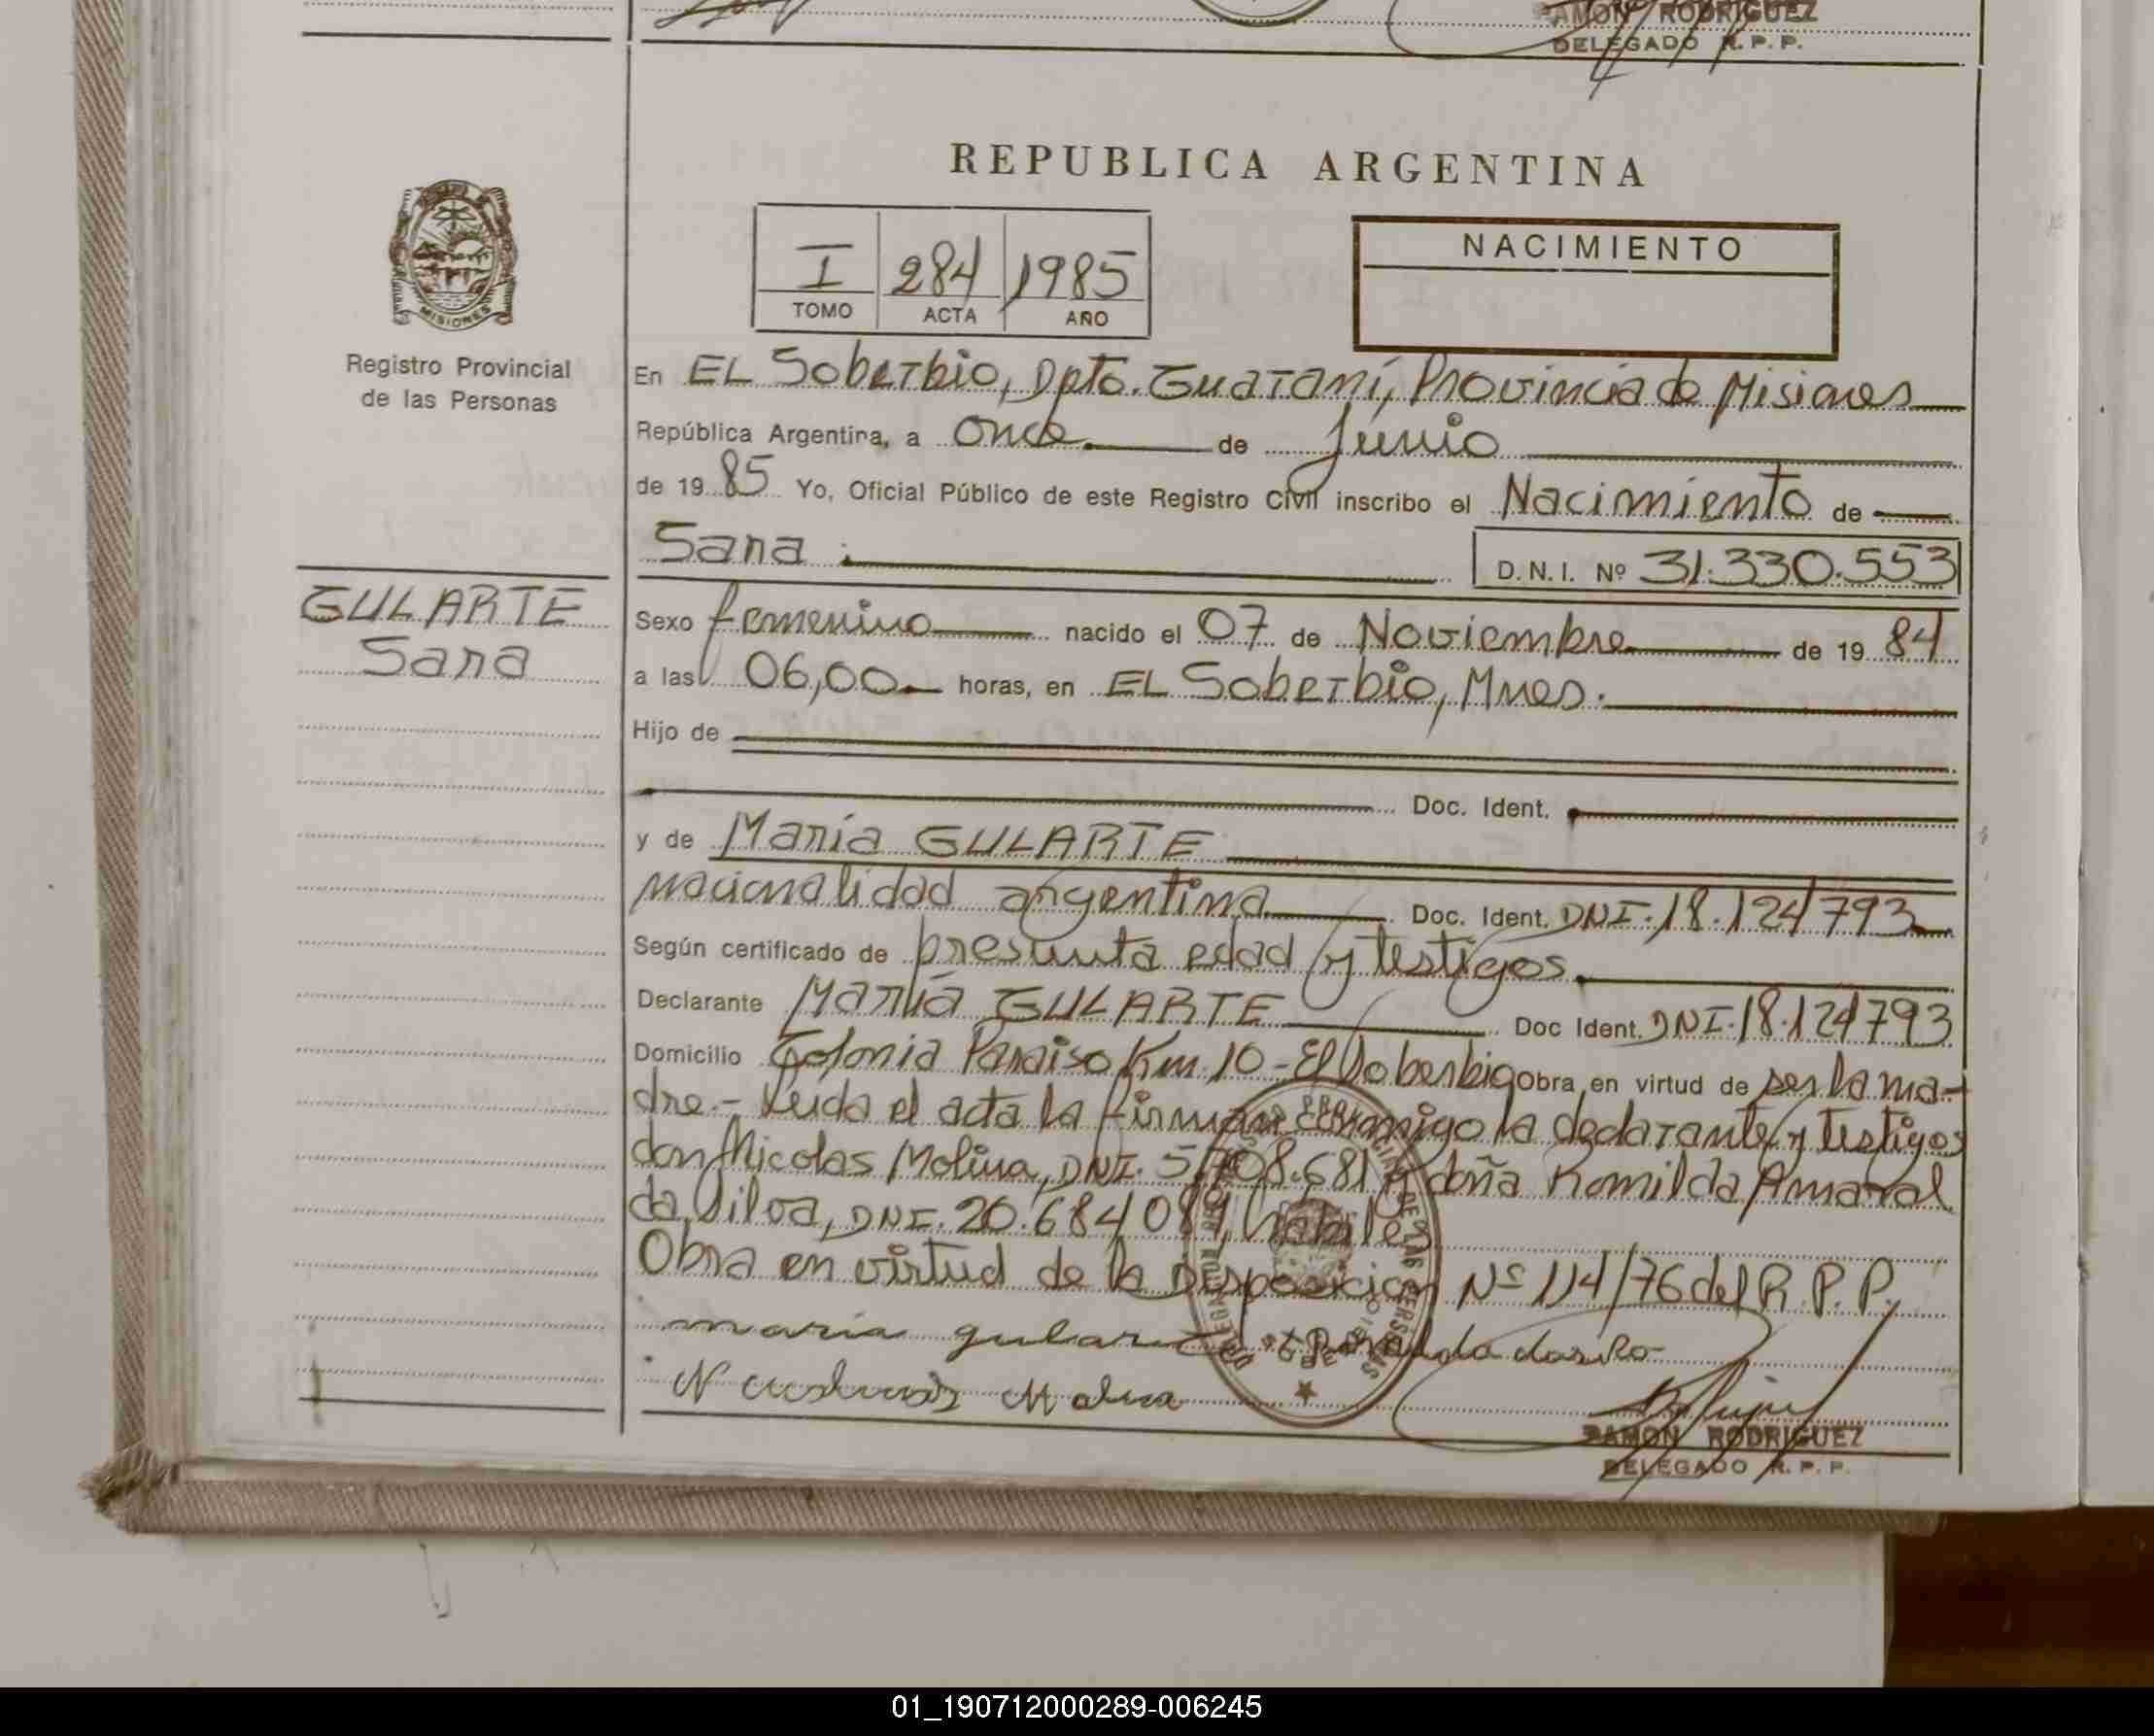 RAMON RODRIGUEZ
DELEGADO R. P. P.
REPUBLICA ARGENTINA
I 284 1985
TOMO ACTA AÑO
NACIMIENTO
MISIONES
Registro Provincial
de las Personas
GULARTE
Sara
En EL Soberbio, Dpto. Guaraní, Provincia de Misiones
República Argentina, a once de Junio
de 19 85 Yo, Oficial Público de este Registro Civil inscribo el Nacimiento de
Sara D.N.I. Nº 31.330.553
Sexo femenino nacido el 07 de Noviembre de 19 84
a las 06,00 horas, en EL Soberbio, Mnes.
Hijo de
Doc. Ident.
y de María GULARTE
nacionalidad argentina Doc. Ident. DNI. 18.124793
Según certificado de presunta edad y testigos.
Declarante María GULARTE Doc Ident. DNI. 18.124793
Domicilio Colonia Paraiso Km. 10 - El Soberbio Obra en virtud de ser la ma-
dre.- Leida el acta la firman conmigo la declarante y testigos
don Nicolas Molina, DNI. 5.708.681 y doña Romilda Amaral
da Silva, DNI. 20.684 089, habiles
Obra en virtud de la Disposicion Nº 114/76 del R. P. P.
maria gularte
Molina
RAMON RODRIGUEZ
DELEGADO R. P. P.
01_190712000289-006245